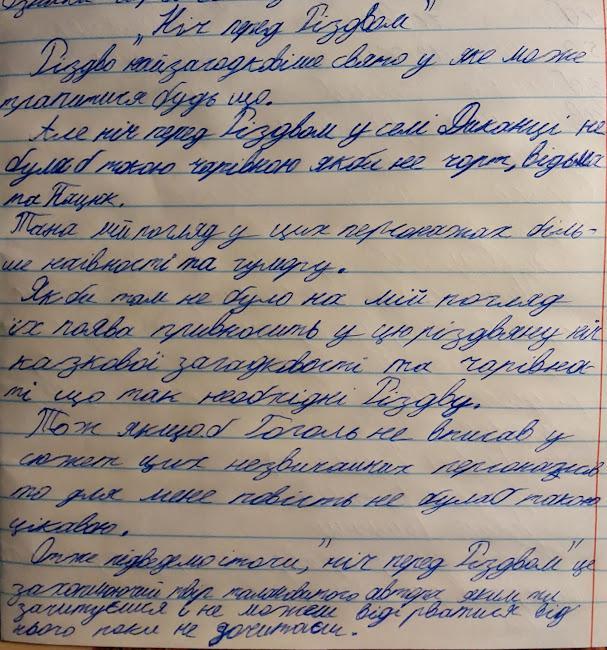 "Ніч перед Різдвом"
Різдво найзагадковіше свято у яке може
трапитися будь що.
Але ніч перед Різдвом у селі Диканці не
була б такою чарівною якби не чорт, відьма
та Пацюк.
Та на мій погляд у цих персонажах біль-
ше наівності та гумору.
Як би там не було на мій погляд
їх поява привносить у цю різдвяну ніч
казкової загадковості та чарівнос-
ті що так необхідні Різдву.
Тож якщо б Гоголь не вписав у
сюжет цих незвичайних персонажів
то для мене повість не була б такою
цікавою.
Отже підведемо ітоги, "ніч перед Різдвом" це
захоплюючий твір талановитого автора яким ти
зачитуєшся і не можеш відірватися від
нього поки не дочитаєш.